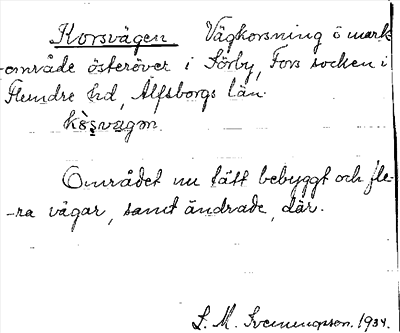 Korsvägen Vägkorsning ö mark
-område österöver i Sörby, Fors socken i
Flundre hd, Älfsborgs län.
kòsvagən
Området nu tätt bebyggt och fle-
-ra vägar, samt ändrade, där.
L. M. Svenungsson. 1934.